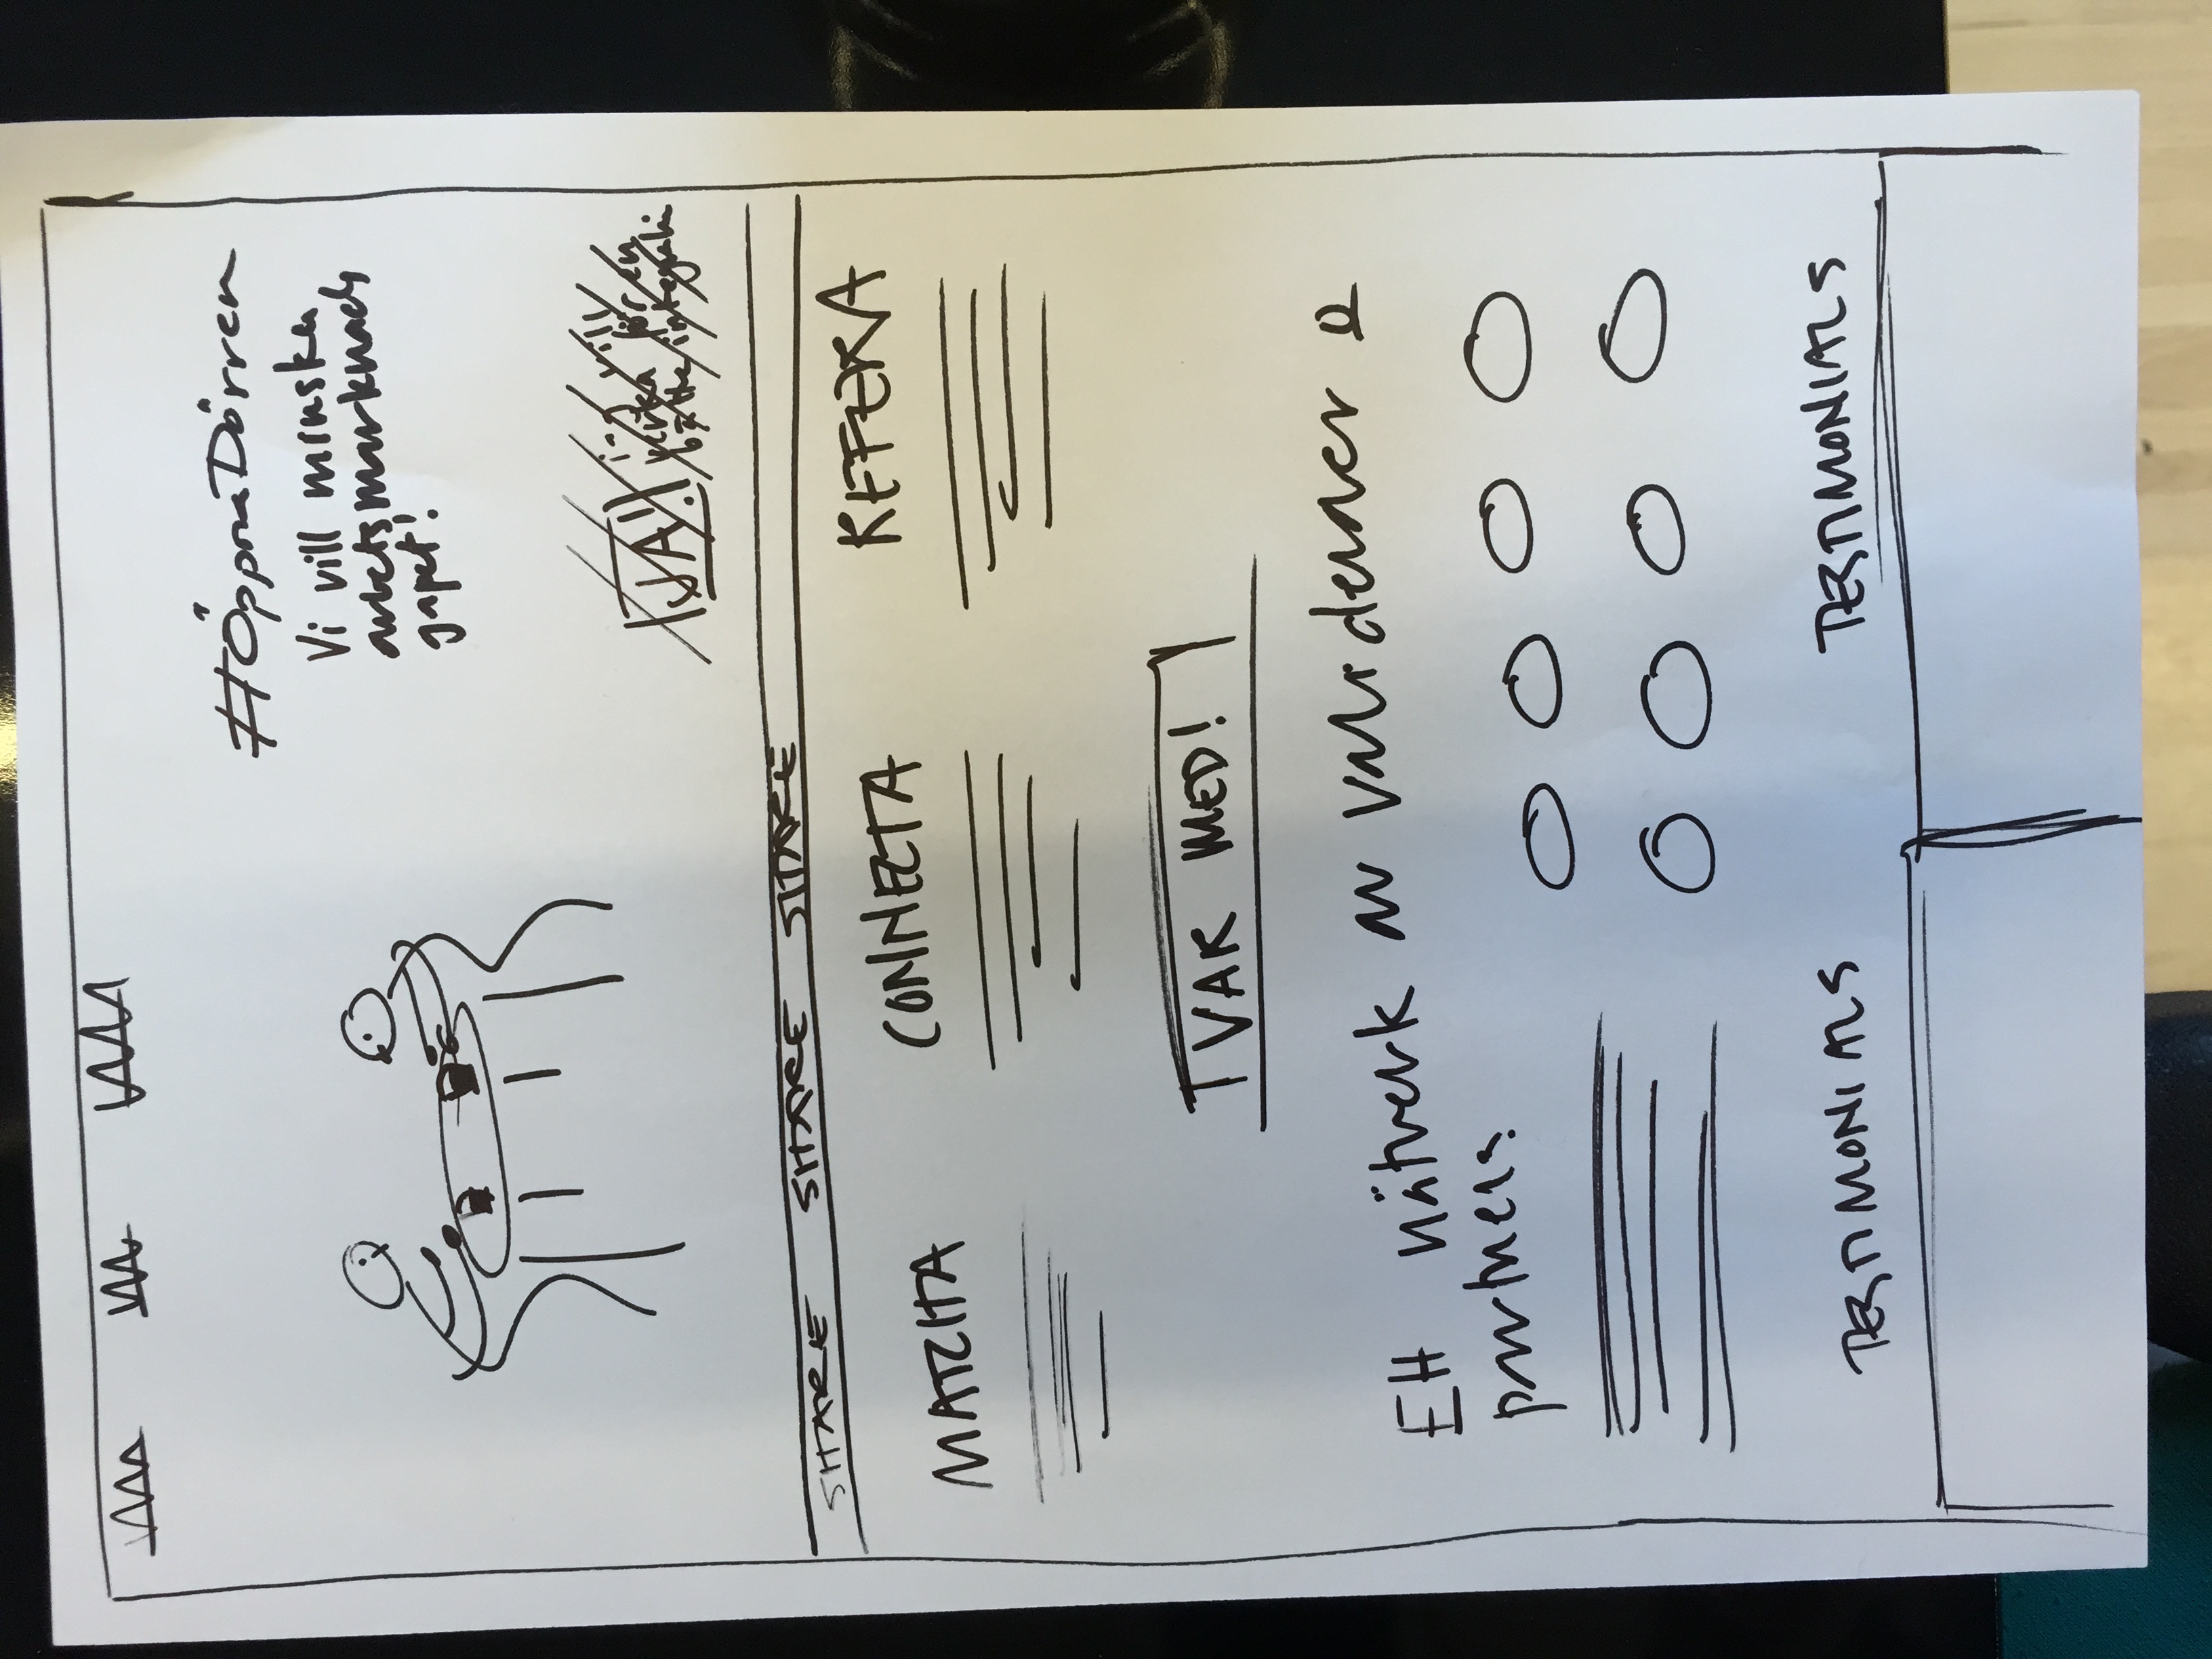 #ÖppnaDörren
Vi vill minska
arbetsmarknads
gapet!
JA! jag vill
verka för en
bättre integration
SHARE SHARE SHARE
MATCHA
CONNECTA
REFERA
VAR MED!
Ett nätverk av
partners
TESTIMONIALS
TESTIMONIALS